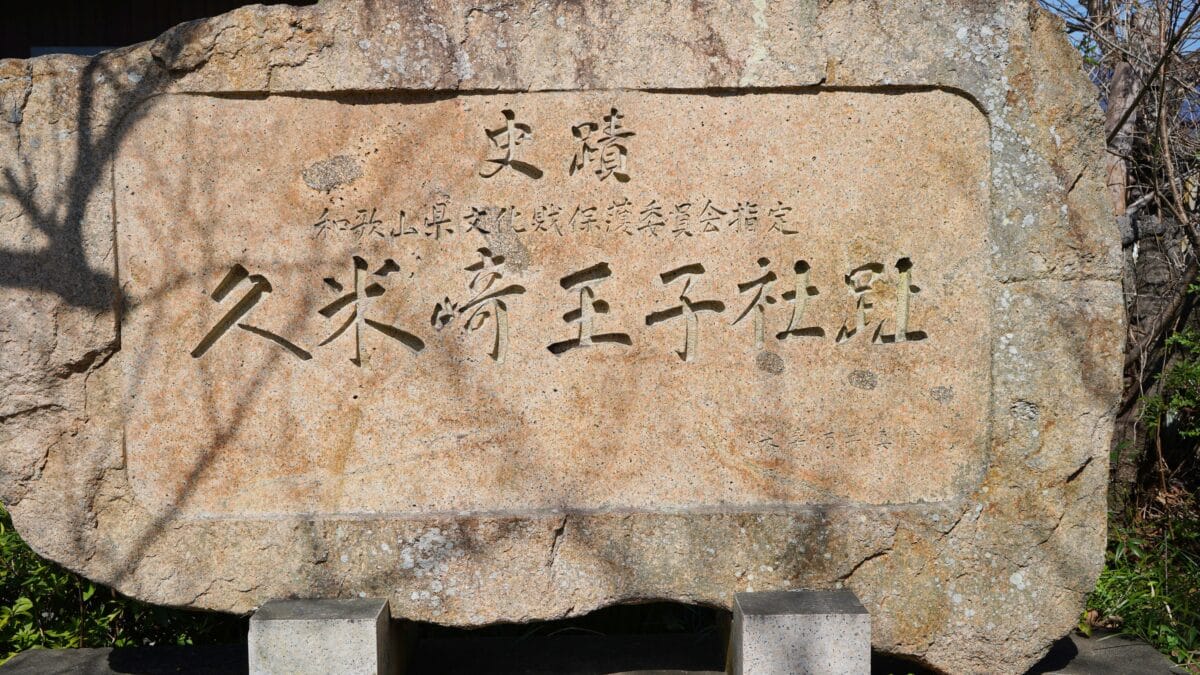 史蹟
和歌山県文化財保護委員会指定
久米﨑王子社趾